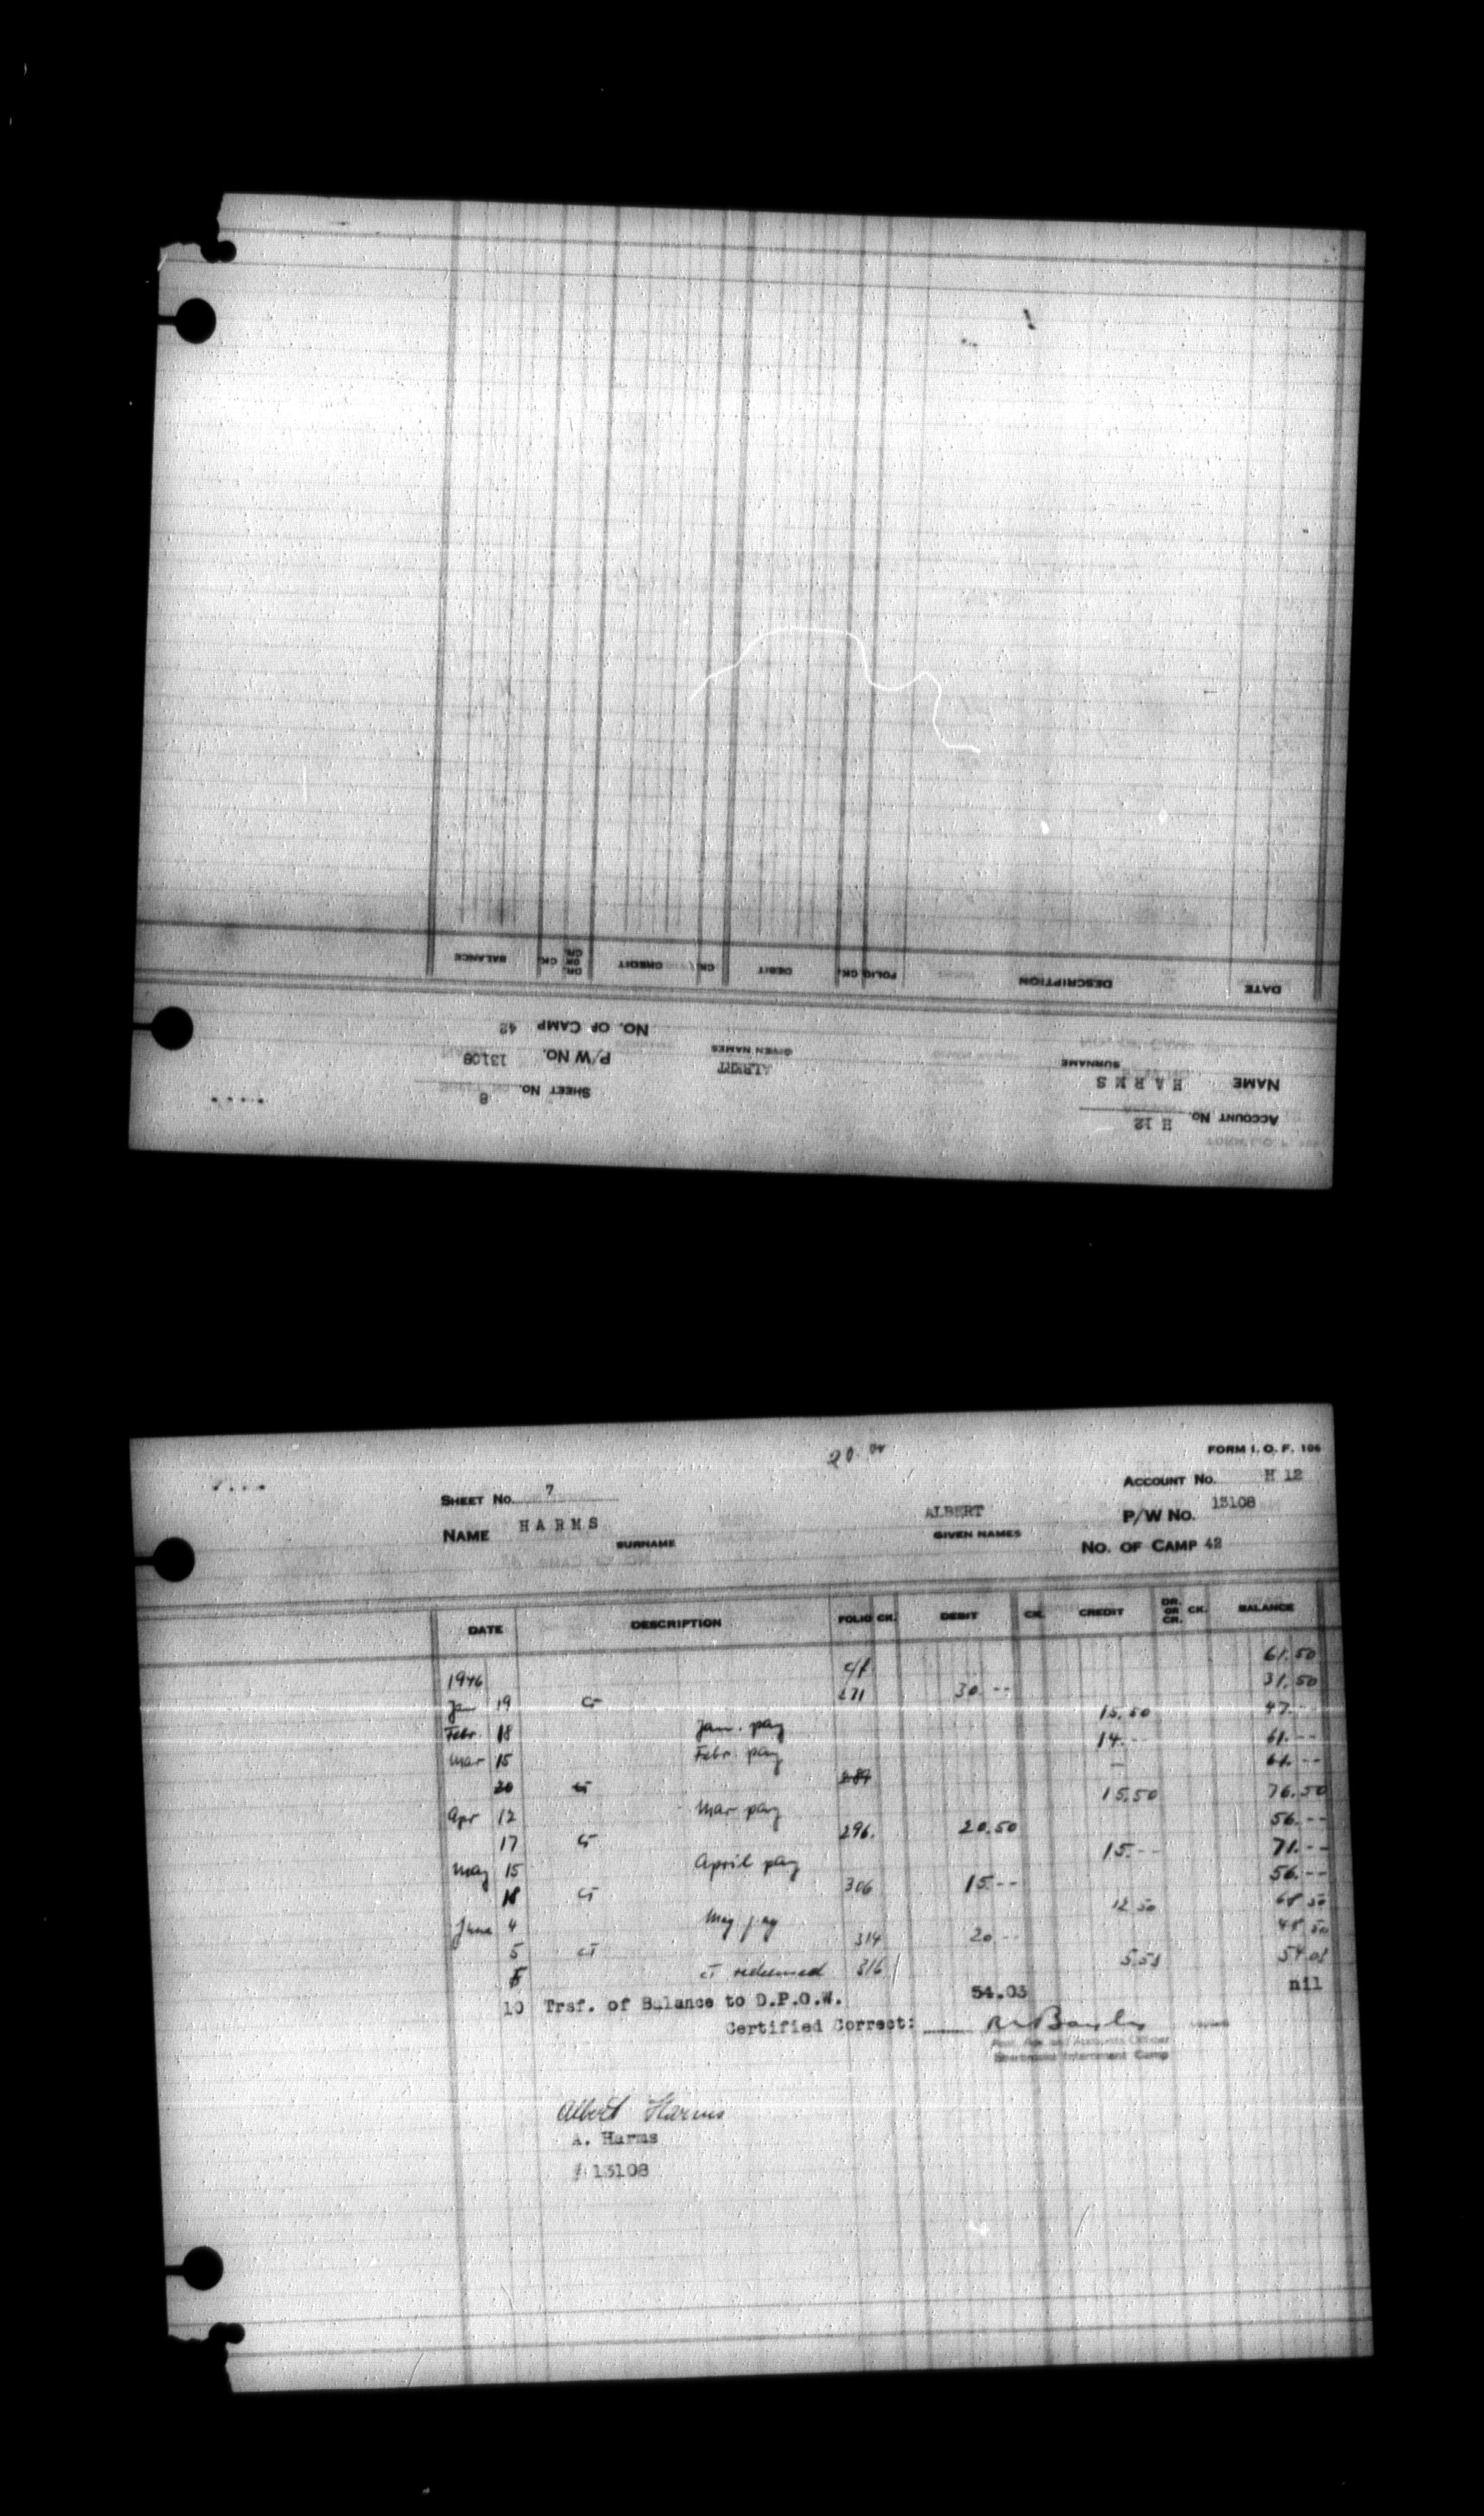 ACCOUNT No. H 12
SHEET No. 8
NAME HARMS ALBERT P/W No. 13108
SURNAME GIVEN NAMES
NO. OF CAMP 42
DATE DESCRIPTION FOLIO CK. DEBIT CK. CREDIT DR. OR CR. CK. BALANCE
20.00
FORM I. O. F. 106
SHEET No. 7 ACCOUNT No. H 12
NAME HARMS ALBERT P/W No. 13108
SURNAME GIVEN NAMES
NO. OF CAMP 42
DATE DESCRIPTION FOLIO CK. DEBIT CK. CREDIT DR. OR CR. CK. BALANCE
1946 c/f 61.50
Jan 19 CT 271 30.-- 31.50
Febr. 18 Jan. pay 15.50 47.--
Mar 15 Febr. pay 14.-- 61.--
20 CT 289 — 61.--
Apr 12 Mar pay 15.50 76.50
17 CT 296. 20.50 56.--
May 15 April pay 15.-- 71.--
18 CT 306 15.-- 56.--
June 4 May pay 12.50 68.50
5 CT 314 20.-- 48.50
5 CT redeemed 316 5.53 54.03
10 Trsf. of Balance to D.P.O.W. 54.03 nil
Certified Correct:
Internment Camp
Albert Harms
A. Harms
# 13108